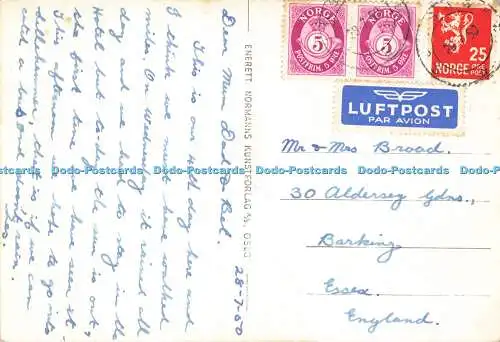 Dear Mum Dad & Bel.
This is our 4th day here and
I think we must have walked
miles. On Wednesday it rained all
day and we had to stay in the
Hotel but to-day the sun is out,
the first time we have seen it.
This afternoon we hope to go into
Lillehammer, that is if we can
catch a bus and it doesn't rain.
Les.
28-7-50
ENERETT NORMANNS KUNSTFORLAG A/S, OSLO
NORGE
5
POSTFRIM. 5 ØRE
NORGE
5
POSTFRIM. 5 ØRE
25
NORGE
LUFTPOST
PAR AVION
Mr & Mrs Broad.
30 Aldersey Gdns.,
Barking
Essex
England.
Dodo-Postcards Dodo-Postcards Dodo-Postcards Dodo-Postcards Dodo-Postcards